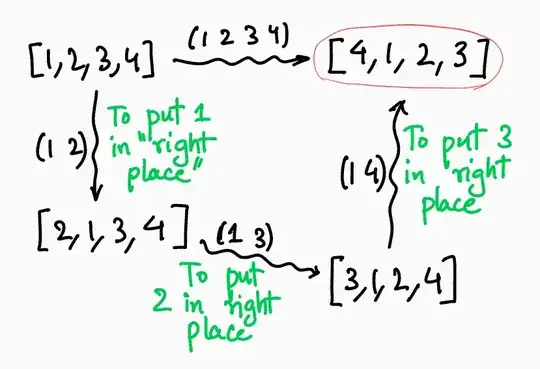 [1,2,3,4]
(1 2 3 4)
[4,1,2,3]
(1 2)
To put 1
in "right
place"
[2,1,3,4]
(1 3)
To put
2 in right
place
[3,1,2,4]
(1 4)
To put 3
in right
place